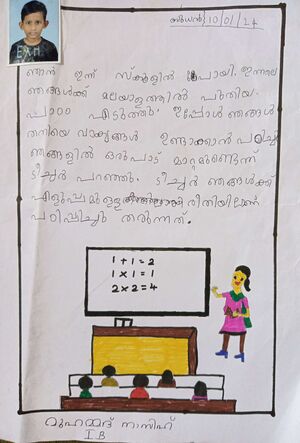 ബുധൻ 10/01/24
ഞാൻ ഇന്ന് സ്കൂളിൽ പോയി. ഇന്നലെ
ഞങ്ങൾക്ക് മലയാളത്തിൽ പുതിയ
പാഠം എടുത്തു. ഇപ്പോൾ ഞങ്ങൾ
തനിയെ വാക്യങ്ങൾ ഉണ്ടാക്കാൻ പഠിച്ചു
ഞങ്ങളിൽ ഒരുപാട് മാറ്റമുണ്ടെന്ന്
ടീച്ചർ പറഞ്ഞു. ടീച്ചർ ഞങ്ങൾക്ക്
എളുപ്പമുള്ള രീതിയിലാണ്
പഠിപ്പിച്ചു തരുന്നത്.
1+1=2
1×1=1
2×2=4
മുഹമ്മദ് നാസിഹ്
I B